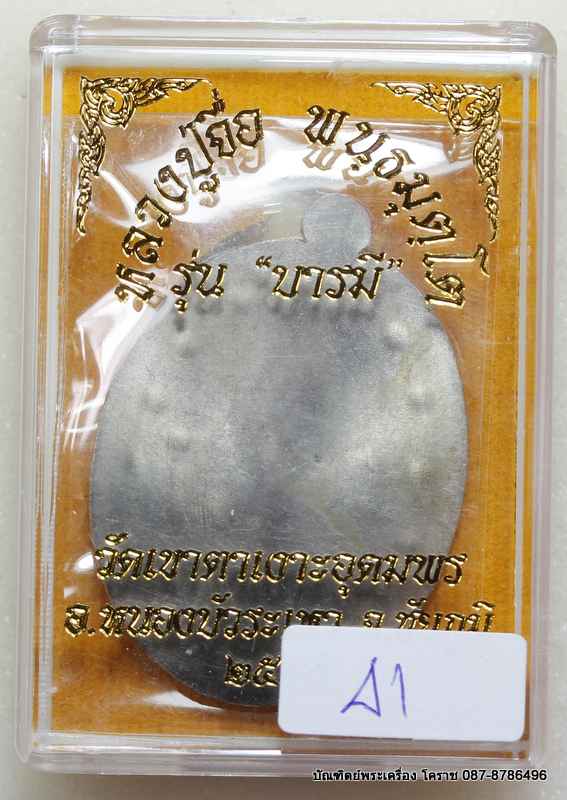 หลวงปู่จื่อ พนฺธมุตฺโต
รุ่น "บารมี"
วัดเขาตาเงาะอุดมพร
อ.หนองบัวระเหว จ.ชัยภูมิ
๒๕
บัณฑิตย์พระเครื่อง โคราช 087-8786496